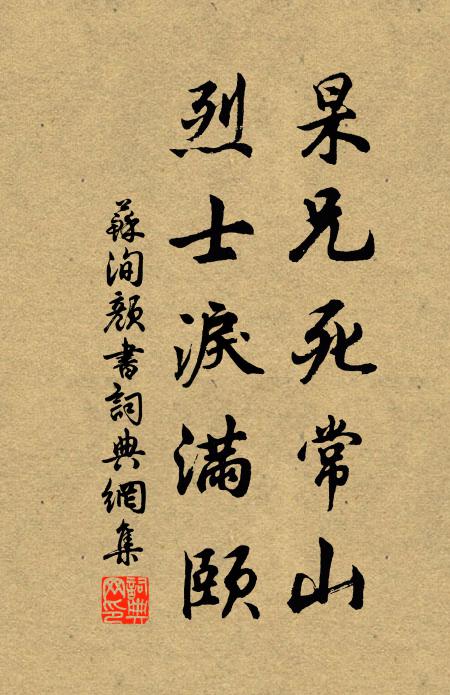 杲兄死常山
烈士淚滿頤
蘇洵顏書詞典網集
詞典網印